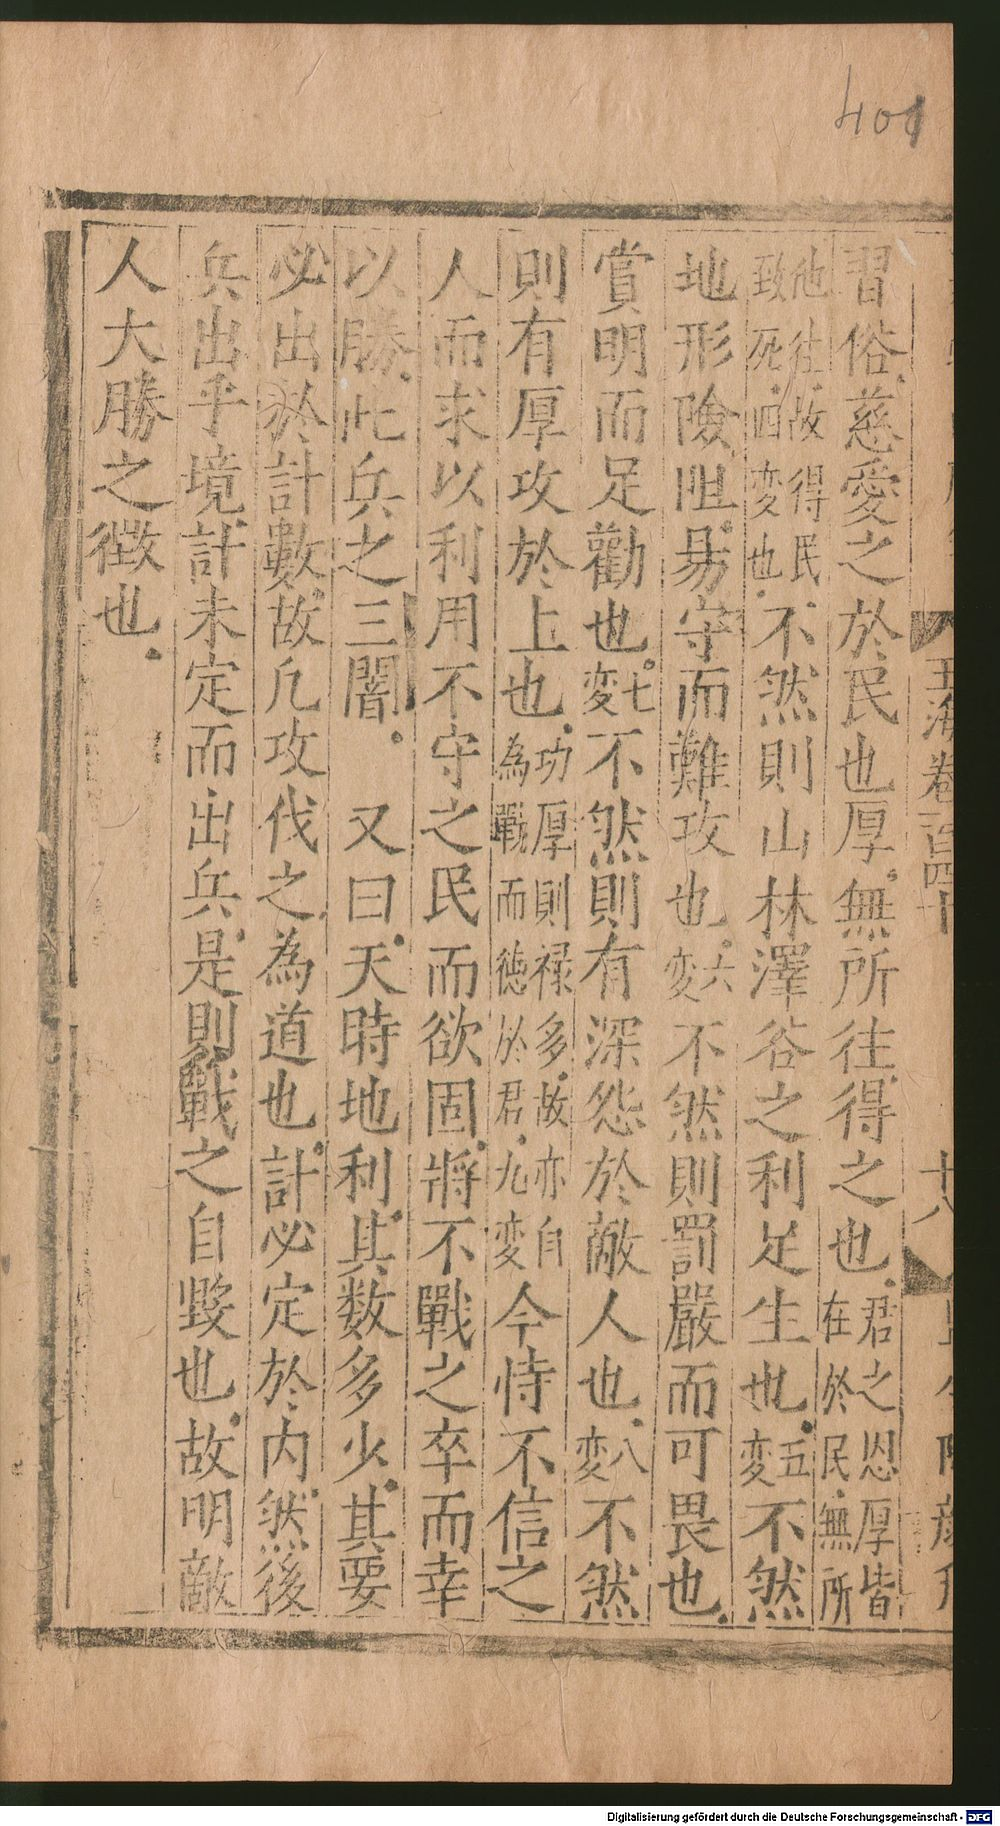 401
玉海卷一百四十
十八
習俗慈愛之於民也厚無所往得之也君之恩厚皆在於民無所
他往故得民致死四変也不然則山林澤谷之利足生也五変不然
地形險阻昜守而難攻也六変不然則罰嚴而可畏也
賞明而足勸也七変不然則有深怨於敵人也八変不然
則有厚攻於上也功厚則禄多故亦自為戰而徳於君九変今恃不信之
人而求以利用不守之民而欲固將不戰之卒而幸
以勝此兵之三闇。又曰天時地利其数多少其要
必出於計數故凡攻伐之為道也計必定於内然後
兵出乎境計未定而出兵是則戰之自毀也故明敵
人大勝之徵也
Digitalisierung gefördert durch die Deutsche Forschungsgemeinschaft - DFG